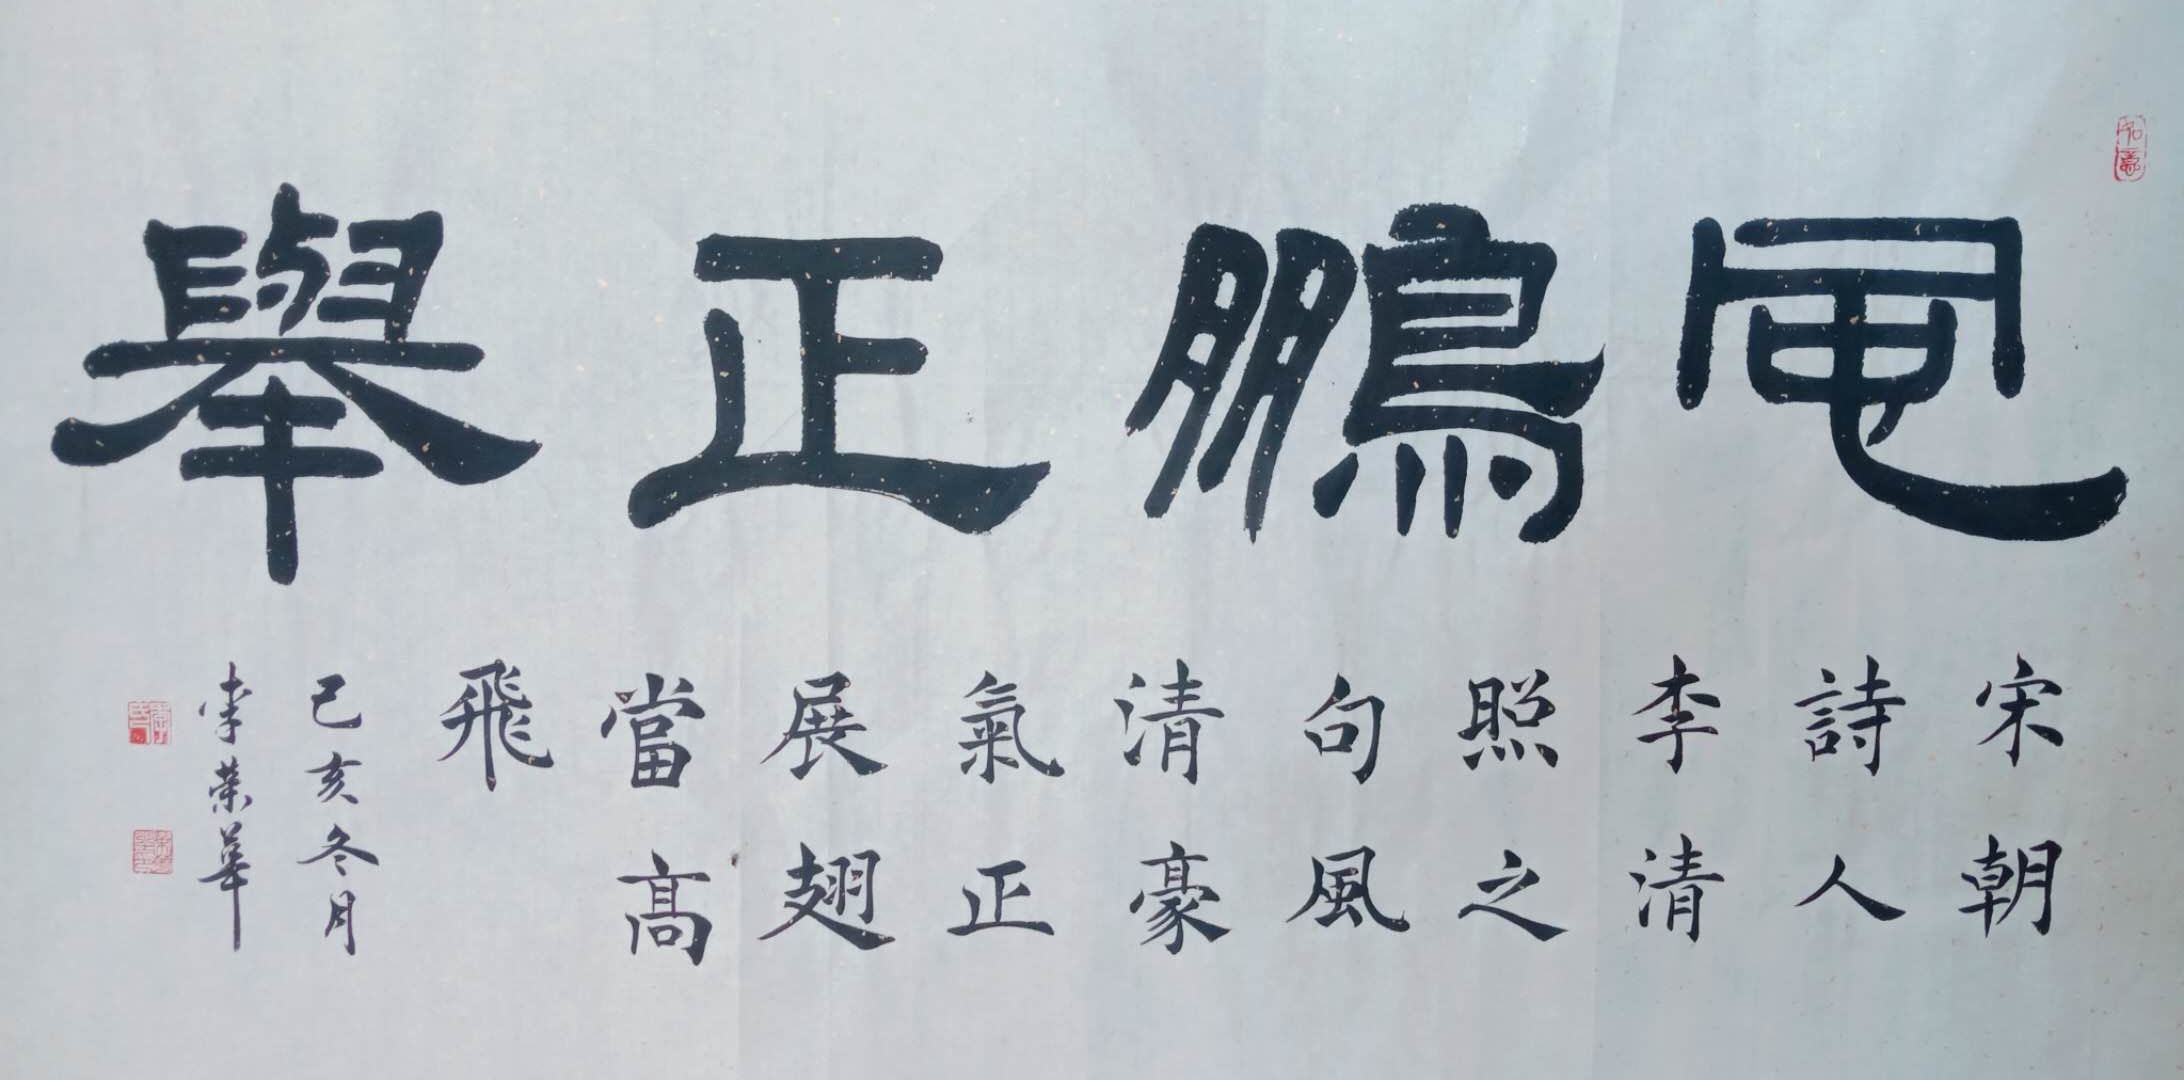 电鵬正舉
宋朝
詩人
李清
照之
句風
清豪
氣正
展翅
當高
飛
己亥冬月
李荣華